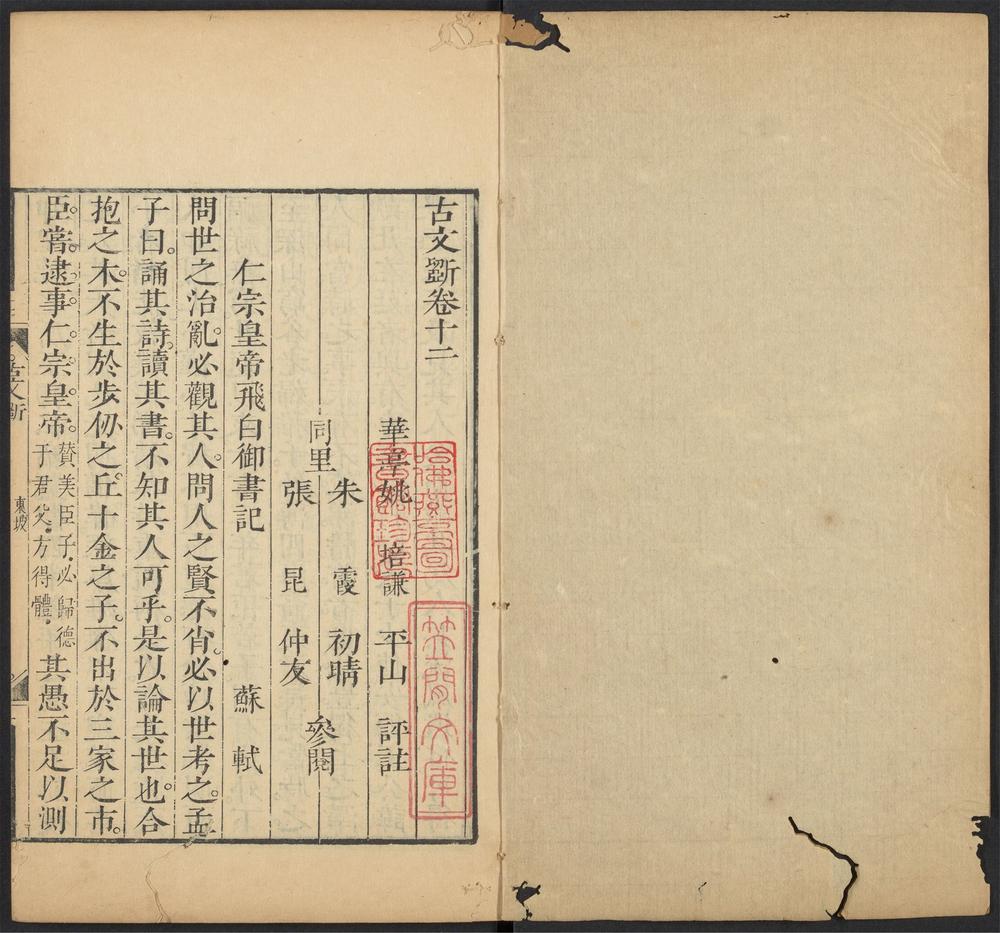 古文斲卷十二
華亭姚培謙平山評註
同里
朱霞初晴
張昆仲友
參閱
仁宗皇帝飛白御書記 蘇軾
問世之治亂。必觀其人。問人之賢不肖。必以世考之。孟
子曰。誦其詩。讀其書。不知其人可乎。是以論其世也。合
抱之木。不生於步仞之丘。十金之子。不出於三家之市。
臣嘗逮事仁宗皇帝。贊美臣子。必歸德于君父。方得體。其愚不足以測
古文斲
東坡
哈佛燕京圖書館珍藏
笠閒文庫